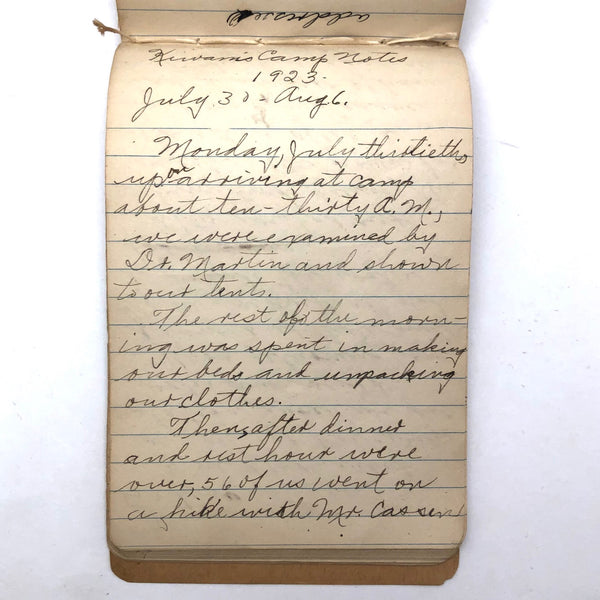 addressed
Kiwanis Camp Notes
1923.
July 30 - Aug 6.
Monday, July thirtieth,
upon arriving at camp
about ten-thirty A.M.,
we were examined by
Dr. Martin and shown
to our tents.
The rest of the morn-
ing was spent in making
our beds and unpacking
our clothes.
Then, after dinner
and rest hour were
over, 56 of us went on
a hike with Mr. Cassen